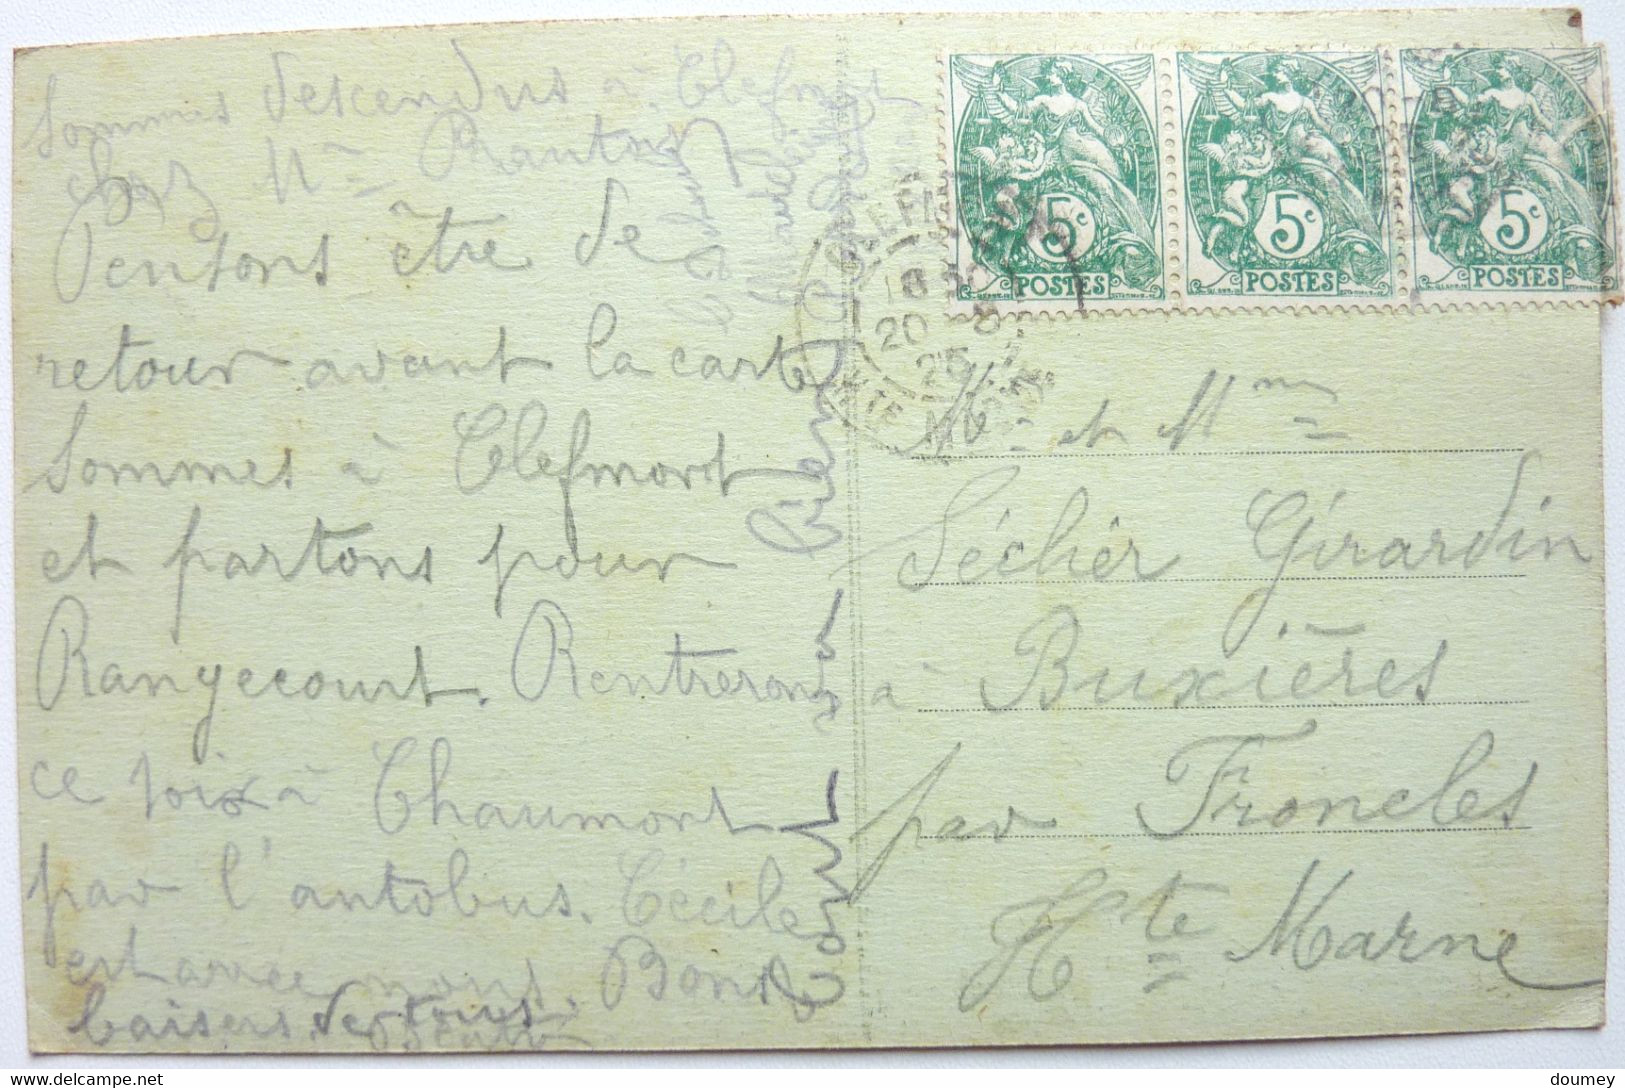 Sommes descendus à Clefmont
chez Mme
Pensons être de
retour avant la carte
Sommes à Clefmont
et partons pour
Rangecourt. Rentrerons
ce soir à Chaumont
par l'autobus. Cécile
est avec nous. Bons
baisers de tous
FRANÇAISE
5c
POSTES
5c
POSTES
5c
POSTES
CLEFMONT
20 - 8
25
HTE MARNE
Mr et Mme
Sécher Girardin
à Buxières
par Froncles
Hte Marne
doumey